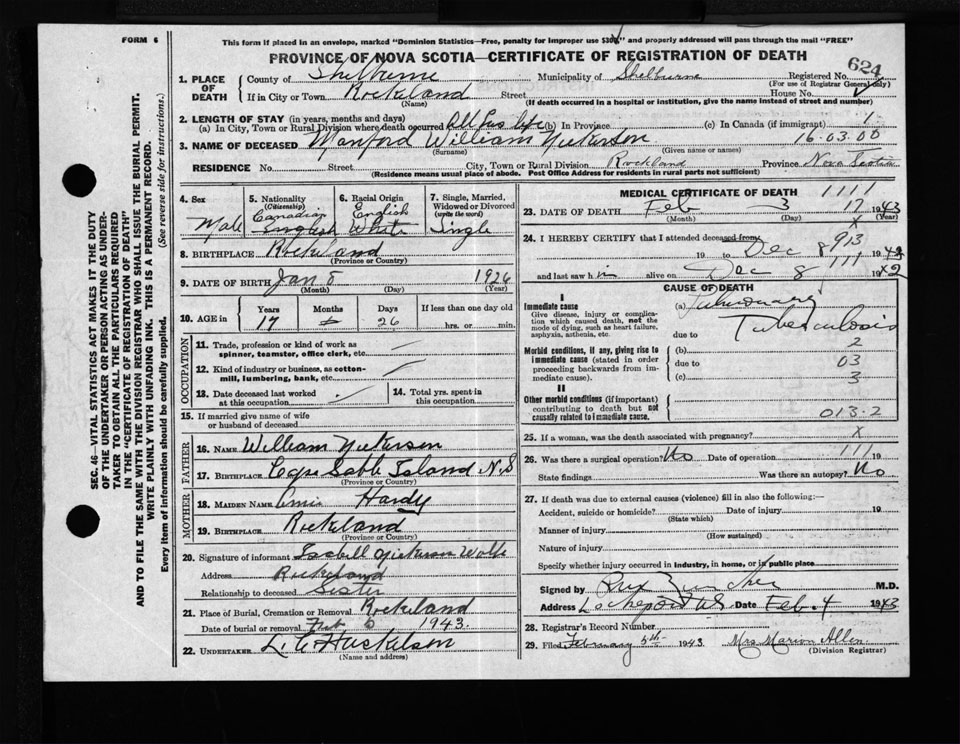 FORM 6
This form if placed in an envelope, marked "Dominion Statistics—Free, penalty for improper use $300" and properly addressed will pass through the mail "FREE"
PROVINCE OF NOVA SCOTIA—CERTIFICATE OF REGISTRATION OF DEATH
624
SEC. 46—VITAL STATISTICS ACT MAKES IT THE DUTY
OF THE UNDERTAKER OR PERSON ACTING AS UNDER-
TAKER TO OBTAIN ALL THE PARTICULARS REQUIRED
IN THE "CERTIFICATE OF REGISTRATION OF DEATH"
AND TO FILE THE SAME WITH THE DIVISION REGISTRAR WHO SHALL ISSUE THE BURIAL PERMIT.
WRITE PLAINLY WITH UNFADING INK. THIS IS A PERMANENT RECORD.
Every item of information should be carefully supplied. (See reverse side for instructions.)
1. PLACE OF DEATH
County of Shelburne Municipality of Shelburne Registered No.
(For use of Registrar General only)
If in City or Town Rockland Street House No.
(Name) (If death occurred in a hospital or institution, give the name instead of street and number)
2. LENGTH OF STAY (in years, months and days)
(a) In City, Town or Rural Division where death occurred All his life (b) In Province (c) In Canada (if immigrant)
16-03.00
3. NAME OF DECEASED Manford William Nickerson
(Surname) (Given name or names)
RESIDENCE No. Street City, Town or Rural Division Rockland Province Nova Scotia
(Residence means usual place of abode. Post Office Address for residents in rural parts not sufficient)
4. Sex Male
5. Nationality (Citizenship) Canadian English
6. Racial Origin English White
7. Single, Married, Widowed or Divorced (write the word) Single
8. BIRTHPLACE Rockland
(Province or Country)
9. DATE OF BIRTH Jan 8 1926
(Month) (Day) (Year)
10. AGE in Years 17 Months Days 26 If less than one day
hrs. or min.
OCCUPATION
11. Trade, profession or kind of work as
spinner, teamster, office clerk, etc.
12. Kind of industry or business, as cotton-
mill, lumbering, bank, etc.
13. Date deceased last worked
at this occupation
14. Total yrs. spent in
this occupation
15. If married give name of wife
or husband of deceased
FATHER
16. NAME William Nickerson
17. BIRTHPLACE Cape Sable Island N.S
(Province or Country)
MOTHER
18. MAIDEN NAME Hardy
19. BIRTHPLACE Rockland
(Province or Country)
20. Signature of informant Isabell Nickerson Wolfe
Address Rockland
Relationship to deceased Sister
21. Place of Burial, Cremation or Removal Rockland
Date of burial or removal Feb 6 1943.
22. UNDERTAKER L. C. Huskelson
(Name and address)
MEDICAL CERTIFICATE OF DEATH
1111
23. DATE OF DEATH Feb 3 17 1943
(Month) (Day) (Year)
X
24. I HEREBY CERTIFY that I attended deceased from
913
19 to Dec 8 1942
111
and last saw h im alive on Dec 8 1942
CAUSE OF DEATH
I
Immediate cause
Give disease, injury or complica-
tion which caused death, not the
mode of dying, such as heart failure,
asphyxia, asthenia, etc.
(a) Pulmonary
Tuberculosis
due to
2
Morbid conditions, if any, giving rise to
immediate cause (stated in order
proceeding backwards from im-
mediate cause).
(b)
due to 03
(c) 3
II
Other morbid conditions (if important)
contributing to death but not
causally related to immediate cause.
013-2
25. If a woman, was the death associated with pregnancy? X
26. Was there a surgical operation? No Date of operation 19
111
State findings Was there an autopsy? No
27. If death was due to external causes (violence) fill in also the following:—
Accident, suicide or homicide? Date of injury 19
(State which)
Manner of injury
(How sustained)
Nature of injury
Specify whether injury occurred in industry, in home, or in public place
Signed by M.D.
Address Lockeport N.S. Date Feb. 4 1943
28. Registrar's Record Number
29. Filed February 5th 1943 Mrs Marion Allen
(Division Registrar)